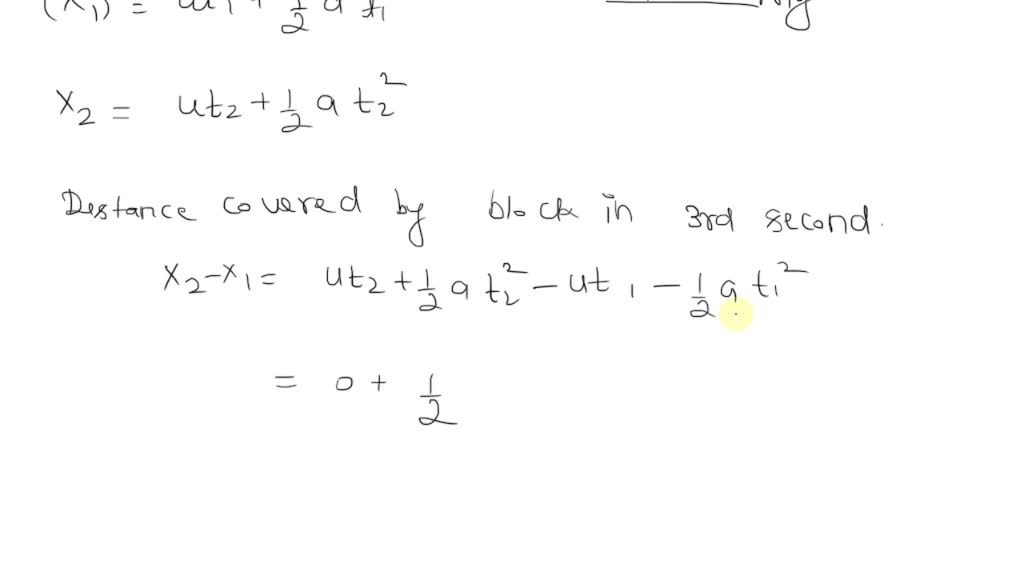 (x₁) = ut₁ + ½ a t₁
x₂ = ut₂ + ½ a t₂²
Distance covered by block in 3rd second.
x₂-x₁ = ut₂ + ½ a t₂² - ut₁ - ½ a t₁²
= 0 + ½